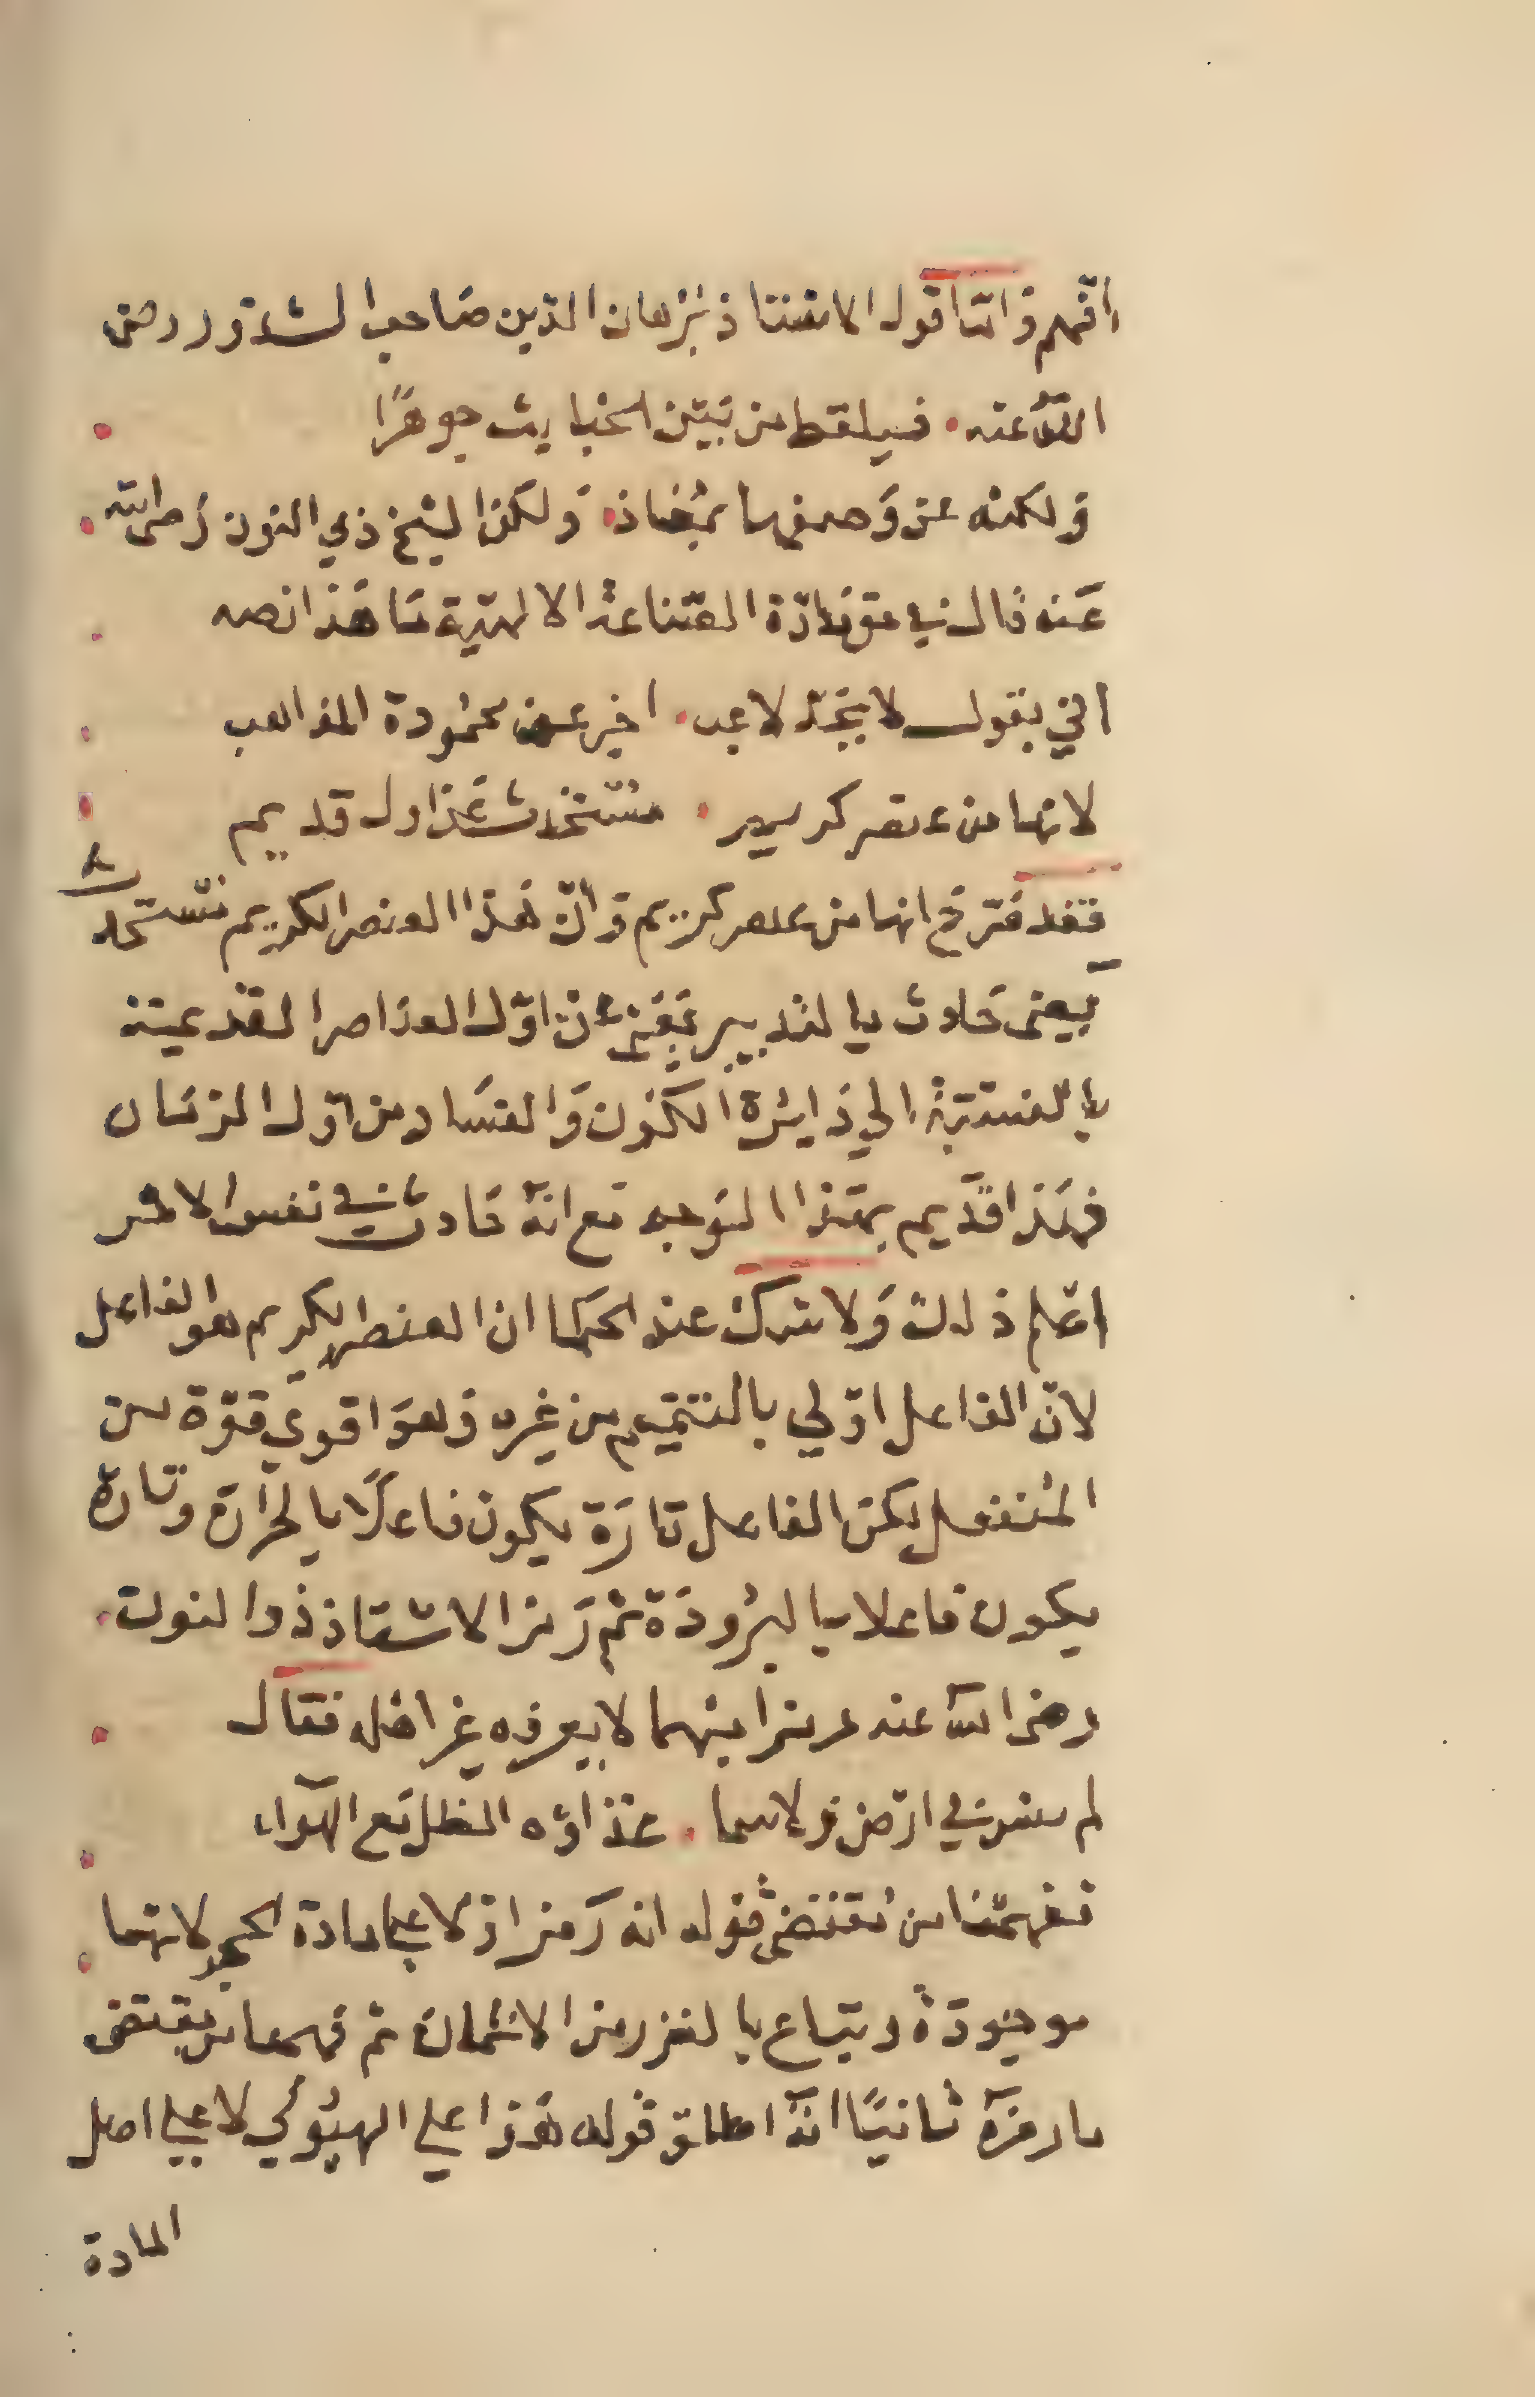 افهم واما قول الاستاذ برهان الدين صاحب الشذور رضى
الله عنه فيلقط من بين الخبايث جوهرًا
ولكنه عن وصفها بمجاز ولكن الشيخ ذي النون رضى الله
عنه قال في مادة الصناعة الالهية ما هذا نصه
اني بقول لا بجد لاعب اخبر عن محمودة المذاهب
لانها من عنصر كريم مستحدث اول قديم
فقد صرح انها من عنصر كريم وان هذا العنصر الكريم مستحد
يعنى حادث بالتدبير عن اول العناصر القديمة
بالنسبة الي دايرة الكون والفساد من اول الزمان
فهذا قديم بهذا الوجه مع انه حادث في نفس الامر
اعلم ذلك ولا شك عند الحكما ان العنصر الكريم هو الفاعل
لان الفاعل اولي بالتتميم من غيره وهو اقوي قوة من
المنفعل لكن الفاعل تارة يكون فاعلًا بالحرارة وتارة
يكون فاعلا بالبرودة ثم رمز الاستاذ ذوا لنون
رضى الله عنه رمزا مبهما لا يعرفه غير اهله فقال
لم في ارض ولا سما غذاؤه الظل مع الهواء
ففهمنا من مقتضى قوله انه رمز اولا علي مادة الحجر لانها
موجودة وتباع بالنزر من الاثمان ثم فهمنا من مقتضى
ما رمزه ثانيًا انه اطلق قوله هذا علي الهيولي لا علي اصل
المادة